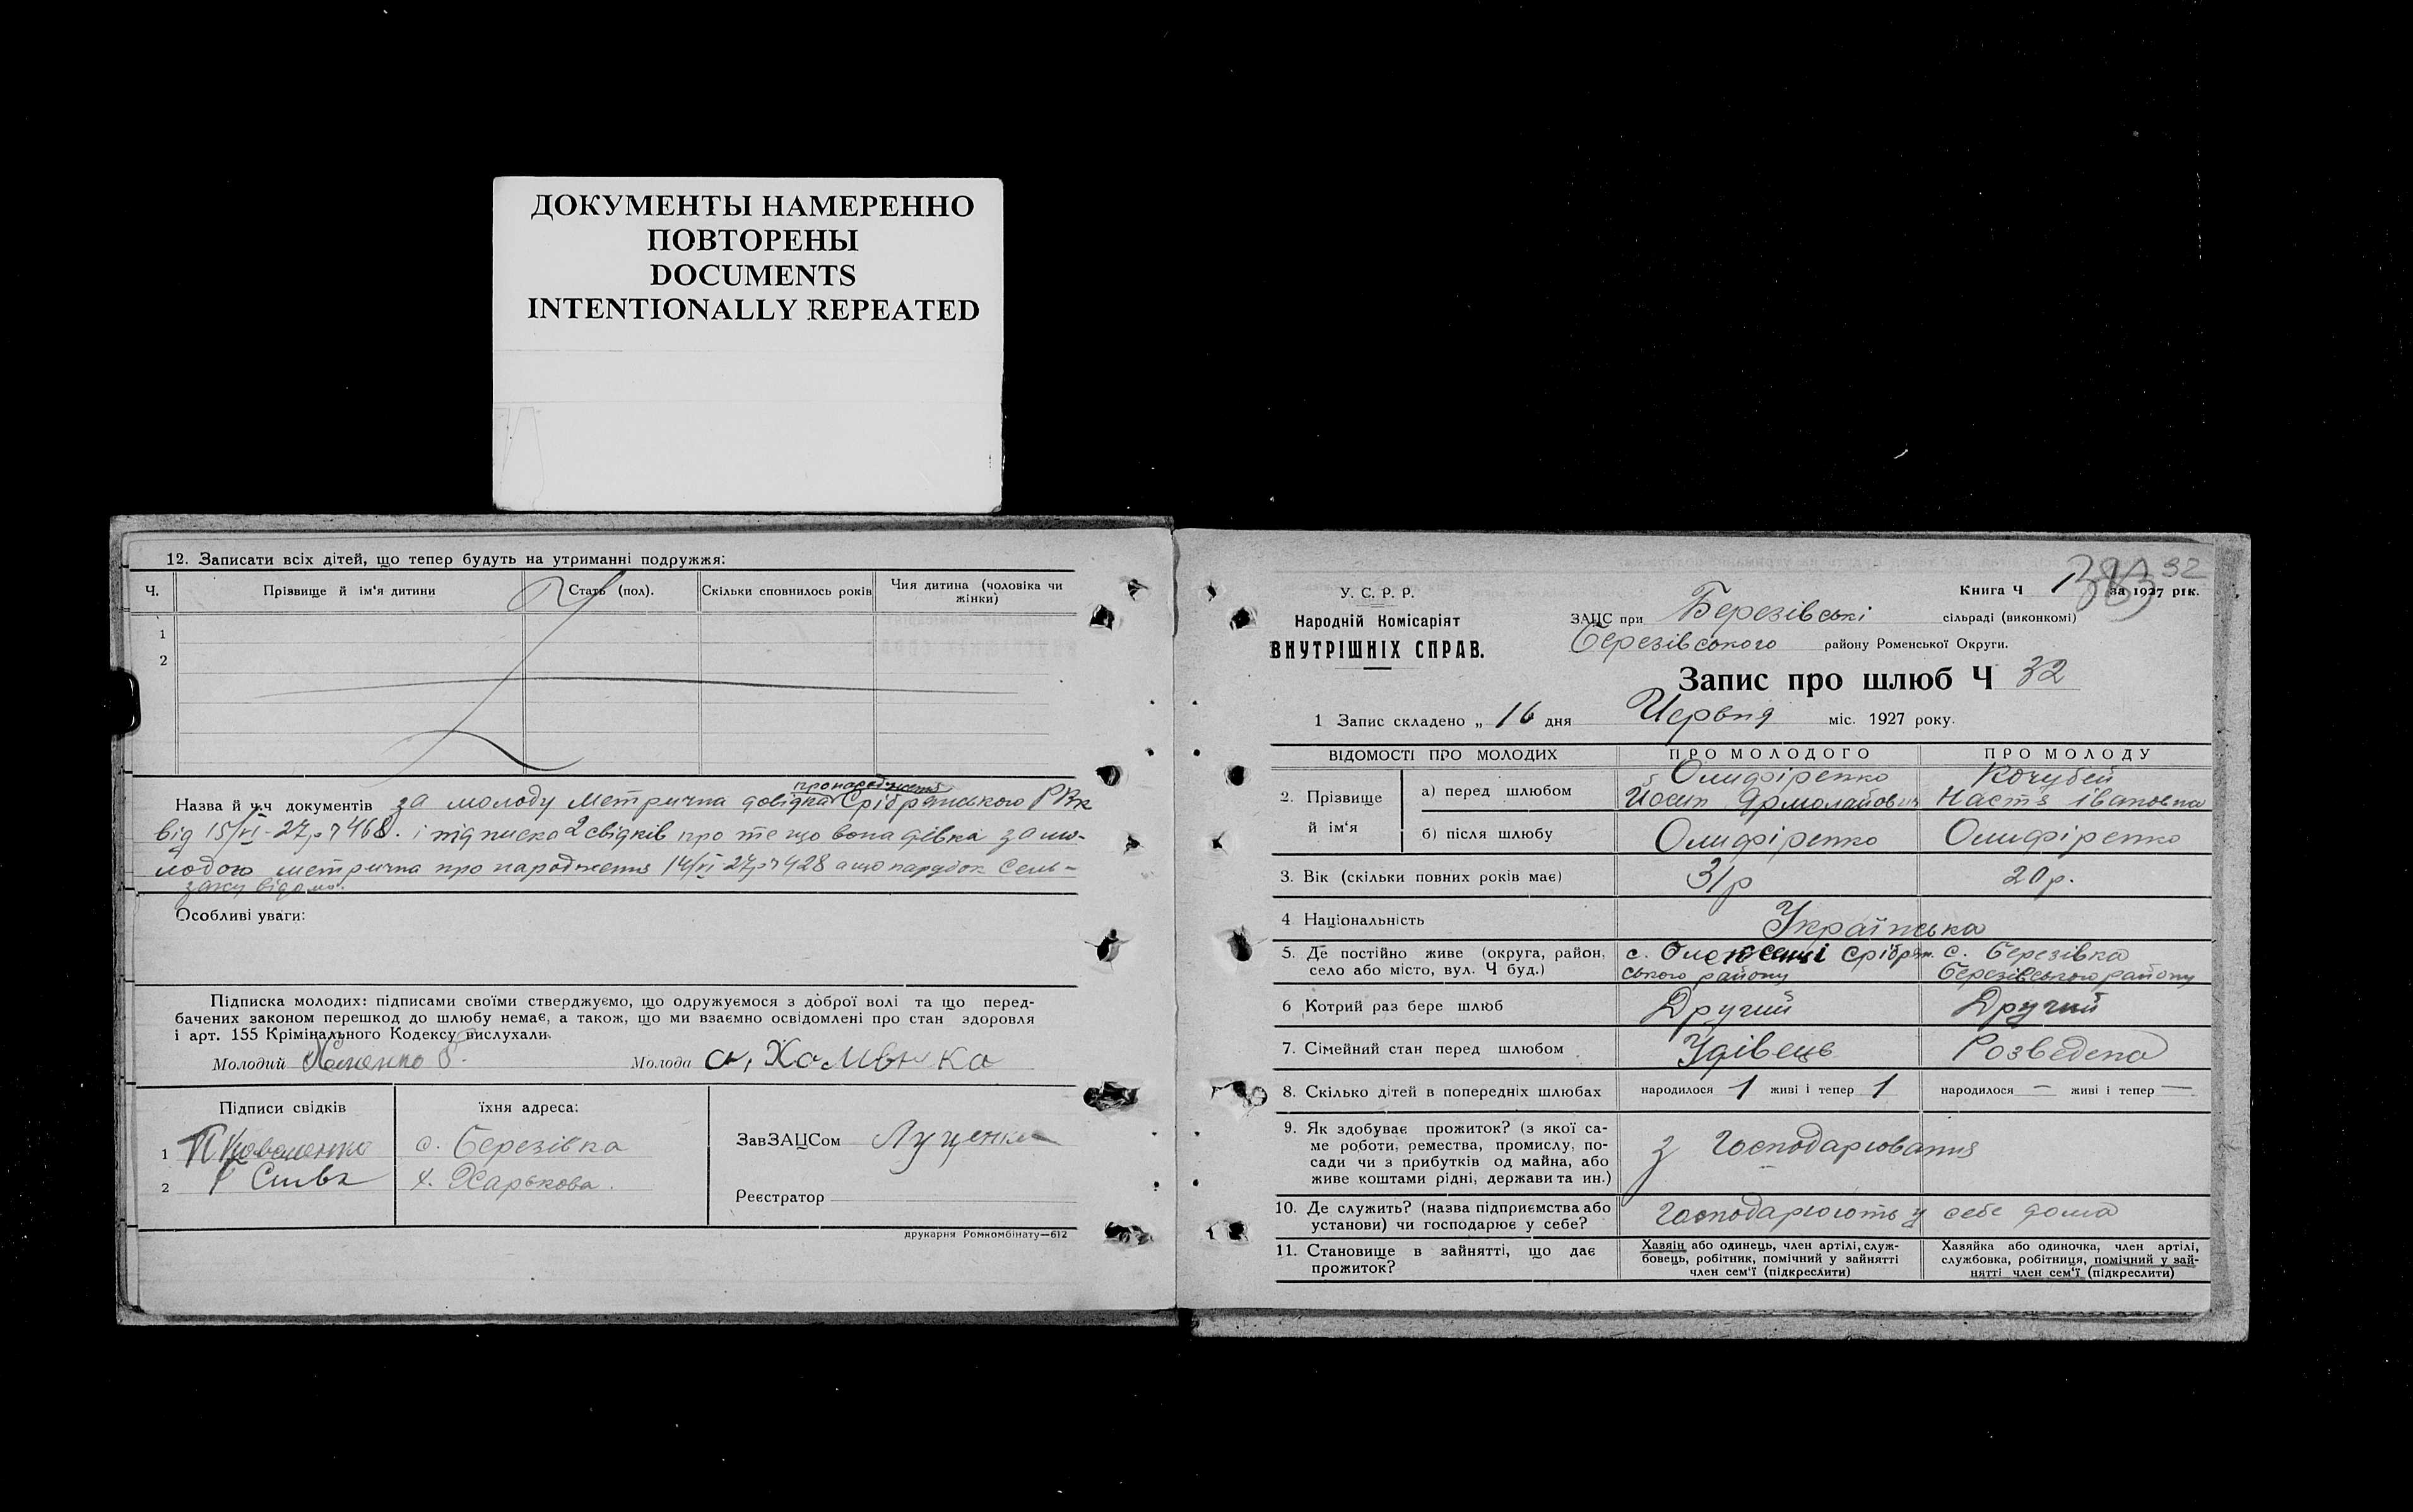 ДОКУМЕНТЫ НАМЕРЕННО
ПОВТОРЕНЫ
DOCUMENTS
INTENTIONALLY REPEATED
12. Записати всіх дітей, що тепер будуть на утриманні подружжя:
Ч. Прізвище й ім'я дитини Стать (пол). Скільки сповнилось років Чия дитина (чоловіка чи жінки)
1
2
про народження
Назва й ч.ч документів за молоду Метрична довідка Срібрянського РВК
від 15/VI-27 р 468. і підписка 2 свідків про те що вона дівка за мо-
лодого метрична про народження 14/VI-27 р 428 а що парубок Сель-
Особливі уваги:
Підписка молодих: підписами своїми стверджуємо, що одружуємося з доброї волі та що перед-
бачених законом перешкод до шлюбу немає, а також, що ми взаємно освідомлені про стан здоровля
і арт. 155 Крімінального Кодексу вислухали.
Молодий Молода Хоменка
Підписи свідків їхня адреса:
1 П Коваленко с. Березівка
2 х. Харькова.
ЗавЗАЦСом Луценко
Реєстратор
друкарня Ромкомбінату—612
У. С. Р. Р.
Народній Комісаріят
ВНУТРІШНІХ СПРАВ.
32
383
Книга Ч 1 за 1927 рік.
ЗАЦС при Березівські сільраді (виконкомі)
Березівського району Роменської Округи.
Запис про шлюб Ч 32
1 Запис складено „ 16 дня Червня міс. 1927 року.
ВІДОМОСТІ ПРО МОЛОДИХ ПРО МОЛОДОГО ПРО МОЛОДУ
2. Прізвище й ім'я
а) перед шлюбом Олифіренко Йосип Ярмолайович Кочубей Настя Івановна
б) після шлюбу Олифіренко Олифіренко
3. Вік (скільки повних років має) 31 р 20 р.
4 Національність Українська
5. Де постійно живе (округа, район, с. Срібрян с. Березівка
село або місто, вул. Ч буд.) ського району Березівського району
6 Котрий раз бере шлюб Другий Другий
7. Сімейний стан перед шлюбом Удівець Розведена
8. Скілько дітей в попередніх шлюбах народилося 1 живі і тепер 1 народилося — живі і тепер —
9. Як здобуває прожиток? (з якої са-
ме роботи, ремества, промислу, по-
сади чи з прибутків од майна, або
живе коштами рідні, держави та ин.)
з Господарювання
10. Де служить? (назва підприємства або
установи) чи господарює у себе?
Господарюють у себе дома
11. Становище в зайнятті, що дає
прожиток?
Хазяін або одинець, член артілі, служ-
бовець, робітник, помічний у зайнятті
член сем'ї (підкреслити)
Хазяйка або одиночка, член артілі,
службовка, робітниця, помічний у зай-
нятті член сем'ї (підкреслити)